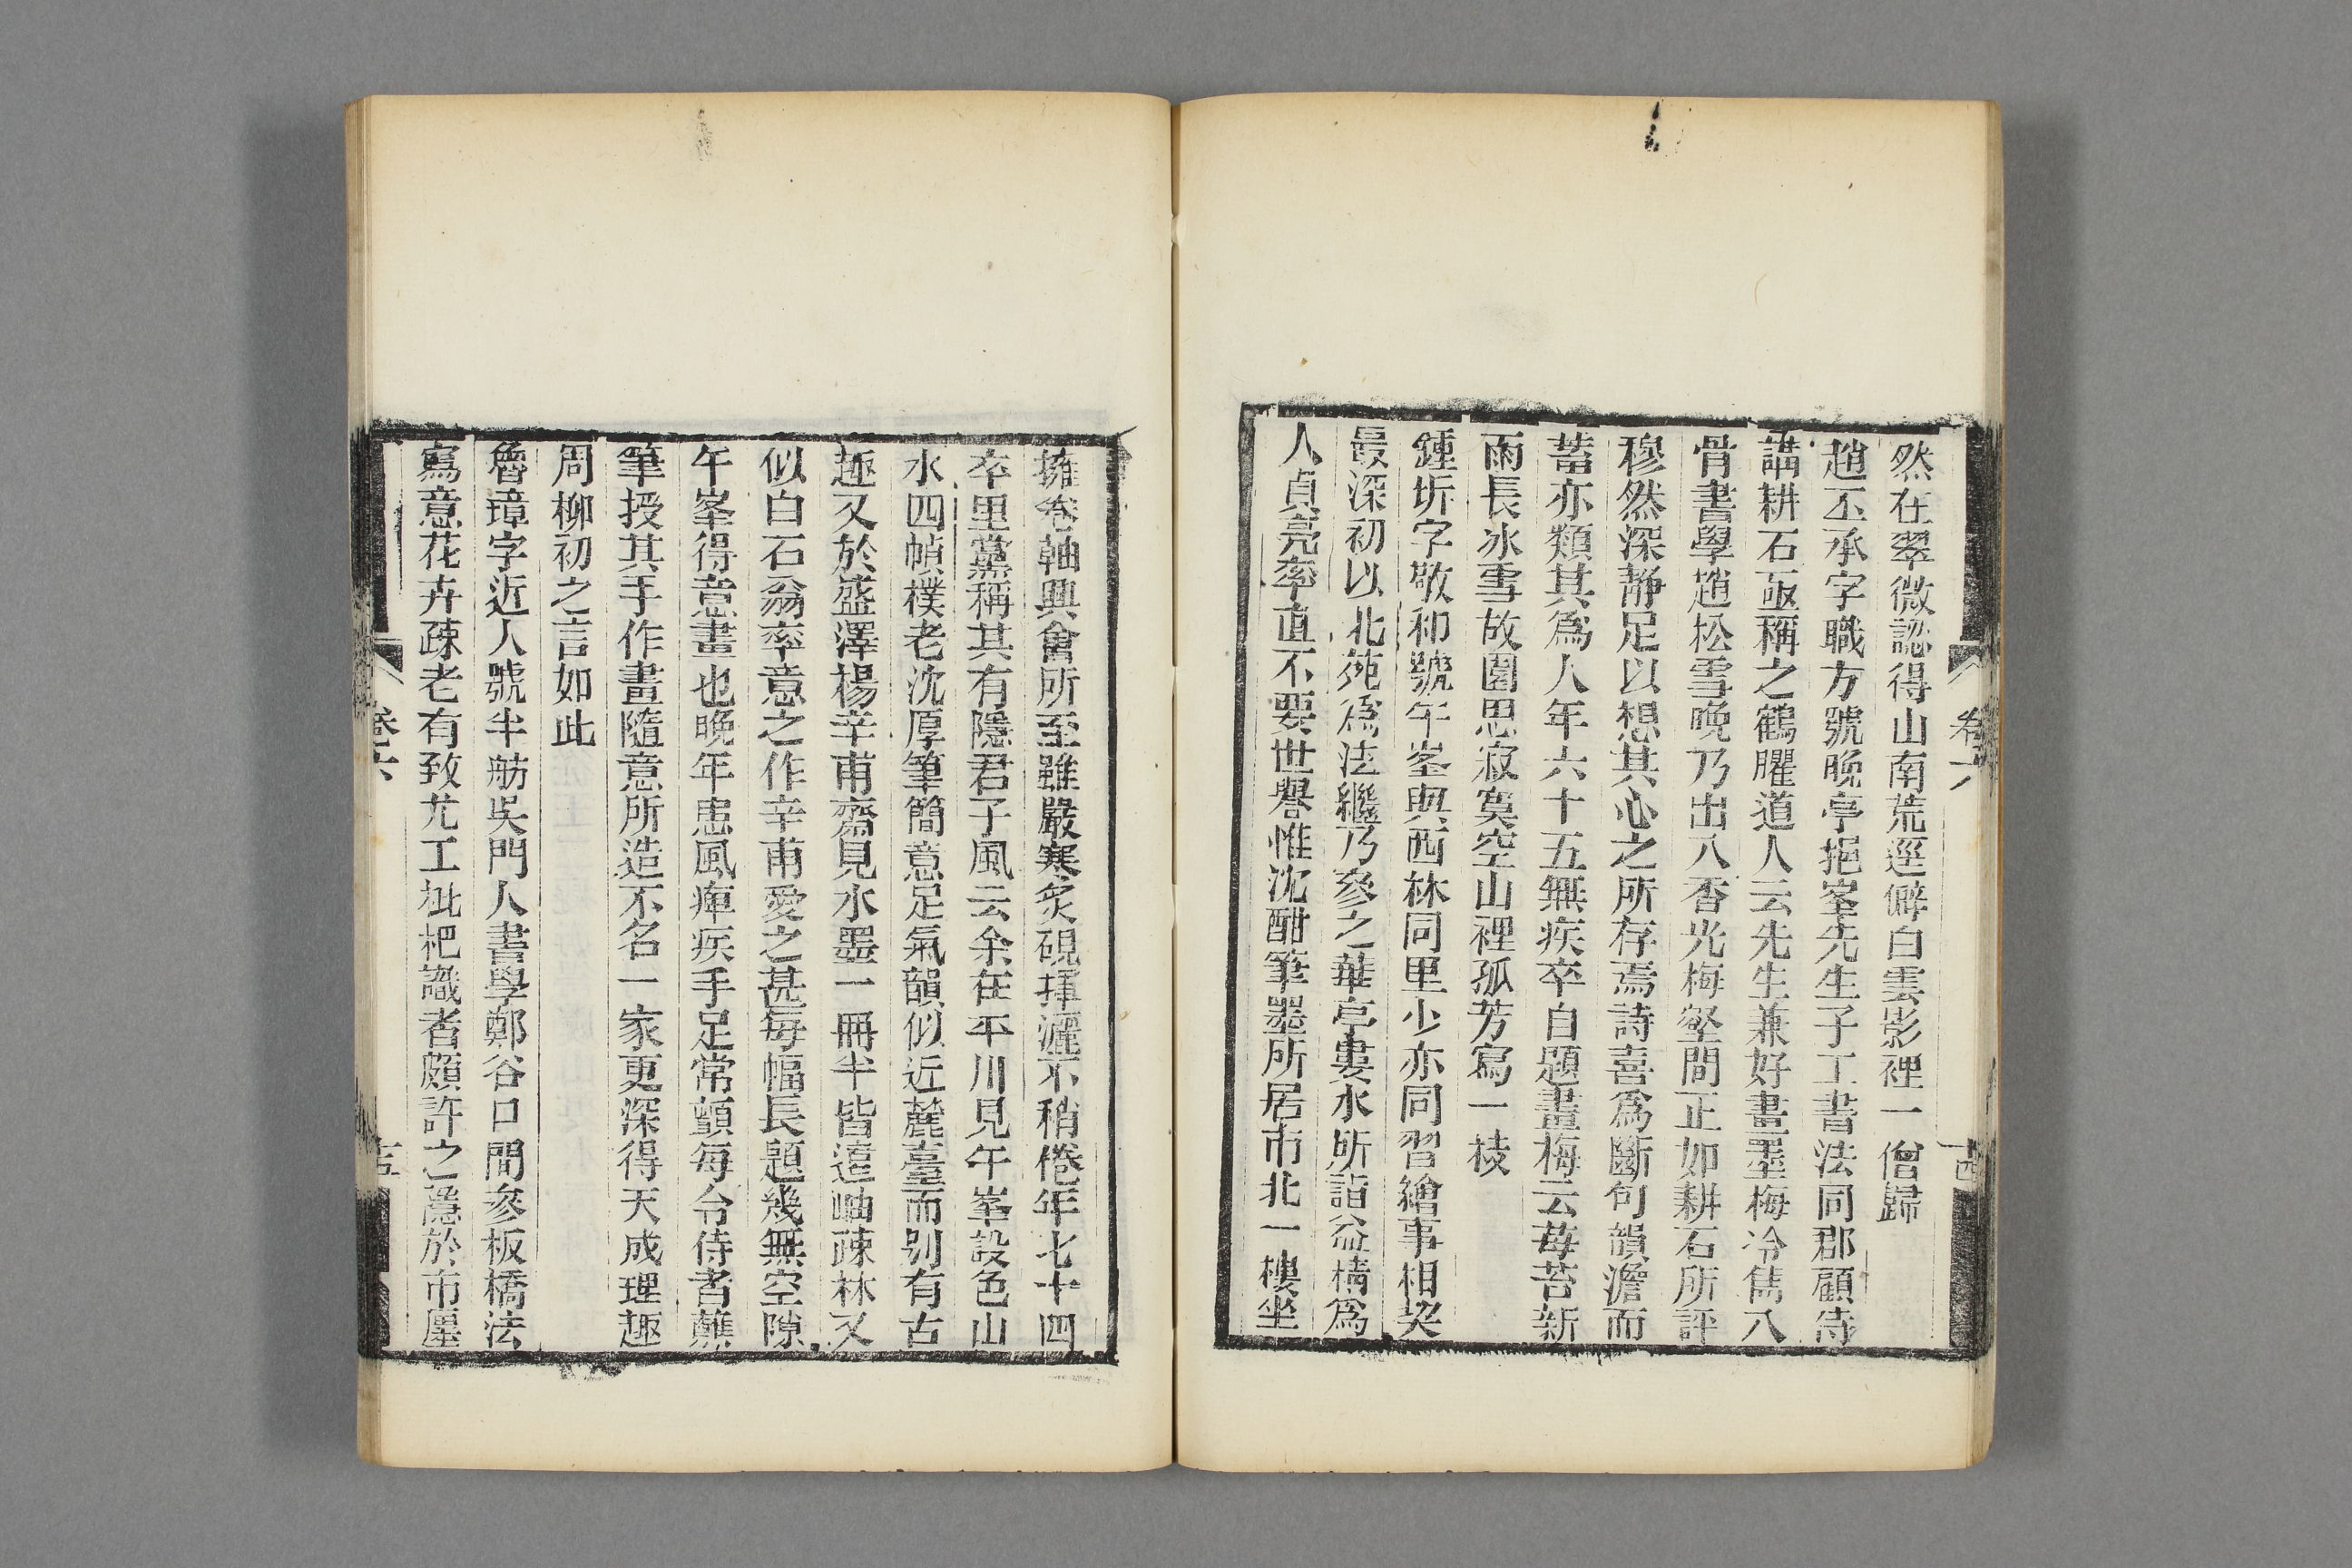 卷六
然在翠微認得山南荒逕僻白雲影裡一僧歸
趙丕承字職方號晚亭挹峯先生子工書法同郡顧侍
講耕石亟稱之鶴臞道人云先生兼好畫墨梅冷雋入
骨書學趙松雪晚乃出入香光梅壑間正如耕石所評
穆然深靜足以想其心之所存焉詩喜爲斷句韻澹而
蓄亦類其爲人年六十五無疾卒自題畫梅云莓苔新
雨長冰雪故園思寂寞空山裡孤芳寫一枝
鍾圻字敬和號午峯與西林同里少亦同習繪事相契
最深初以北苑爲法繼乃參之華亭婁水所詣益精爲
人貞亮率直不要世譽惟沈酣筆墨所居市北一樓坐
擁卷軸興會所至雖嚴寒炙硯揮灑不稍倦年七十四
卒里黨稱其有隱君子風云余在平川見午峯設色山
水四幀樸老沈厚筆簡意足氣韻似近麓臺而别有古
趣又於盛澤楊辛甫齋見水墨一冊半皆遠岫疎林又
似白石翁率意之作辛甫愛之甚每幅長題幾無空隙
午峯得意畫也晚年患風痺疾手足常顫每令侍者蘸
筆授其手作畫隨意所造不名一家更深得天成理趣
周柳初之言如此
魯璋字近人號半舫吳門人書學鄭谷口間參板橋法
寫意花卉疎老有致尤工枇杷識者頗許之隱於市廛
卷六